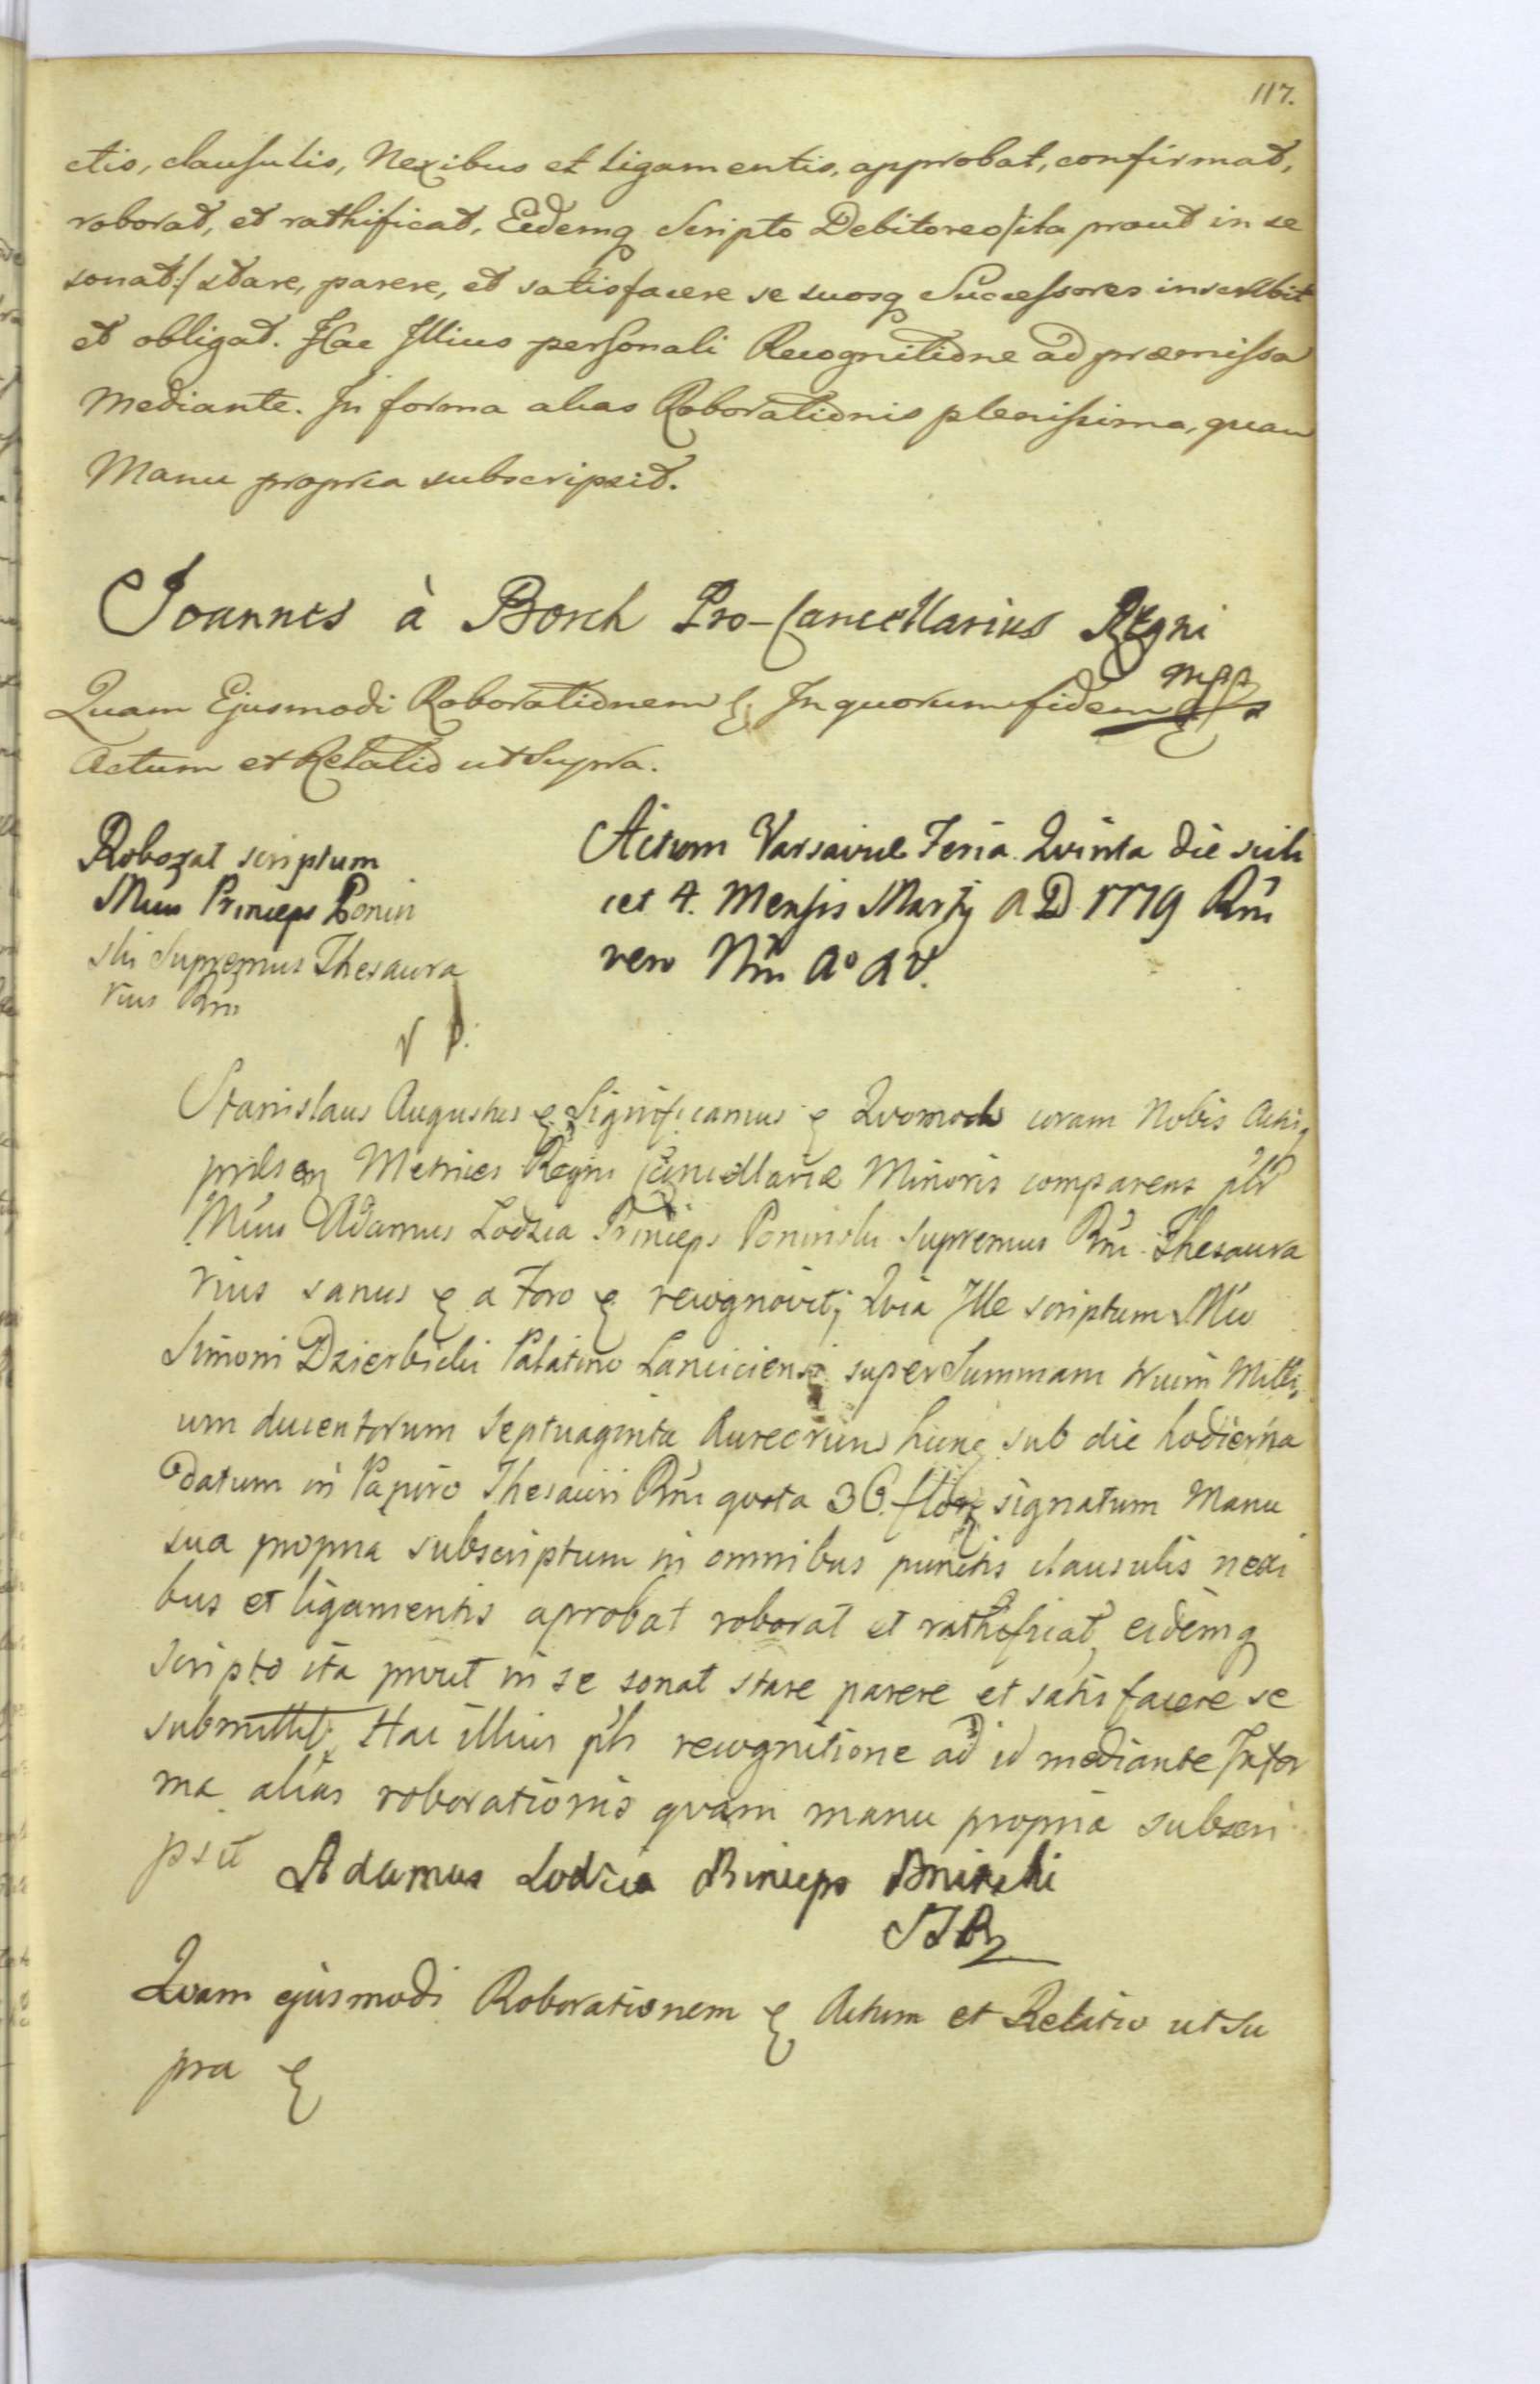 117.
ctis, clausulis, Nexibus et ligamentis, approbat, confirmat,
roborat, et rathificat, Eidemq Scripto Debitoreo /ita prout in se
sonat:/ stare, parere, et satisfacere se suosq Successores inscribit
et obligat. Hac Illius personali Recognitione ad præmissa
Mediante. In forma alias Roborationis plenissima, quam
Manu propria subscripsit.
Joannes à Borch Pro-Cancellarius Regni
mpp
Quam Ejusmodi Roborationem & In quorum fidem &
Actum et Relatio ut Supra.
Roborat scriptum
Mcus Princeps Ponin
ski Supremus Thesaura
rius Rni
Actum Varsaviæ Feria Qvinta die scili
cet 4. Mensis Martij A D 1779 Rni
vero Nri Ao XV.
Stanislaus Augustus & Significamus & Qvomodo coram Nobis Actisq
prsbsq Metrices Regni Cancellariæ Minoris comparens plr
Mcus Adamus Lodzia Princeps Poninski Supremus Rni Thesaura
rius sanus & a Foro & recognovit; Qvia Ille scriptum Mco
Simoni Dzierbicki Palatino Lanciciensi super Summam trium Milli,
um ducentorum Septuaginta Aureorum hung sub die hodierna
datum in Papiro Thesauri Rni qvota 36. flor signatum Manu
sua propria subscriptum in omnibus punctis clausulis nexi
bus et ligamentis aprobat roborat et rathificat, eidemq
Scripto ita prout in se sonat stare parere et satisfacere se
submittit; Hac illius pli recognitione ad id mediante In for
ma alias roborationis qvam manu propria subscri
psit
Adamus Lodzia Princeps Poninski
STR
Qvam ejusmodi Roborationem & Actum et Relatio ut Su
pra &